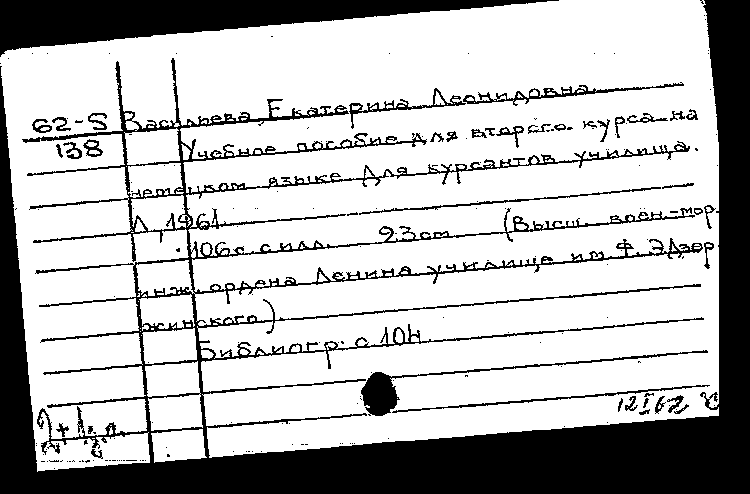 62-5 Васильева, Екатерина Леонидовна.
138 Учебное пособие для второго курса на
немецком языке для курсантов училища.
Л., 1961.
106 с. с илл. 23 см (Высш. воен.-мор.
инж. ордена Ленина училище им Ф. Э Дзер
жинского).
Библиогр: с 104
12 I 62